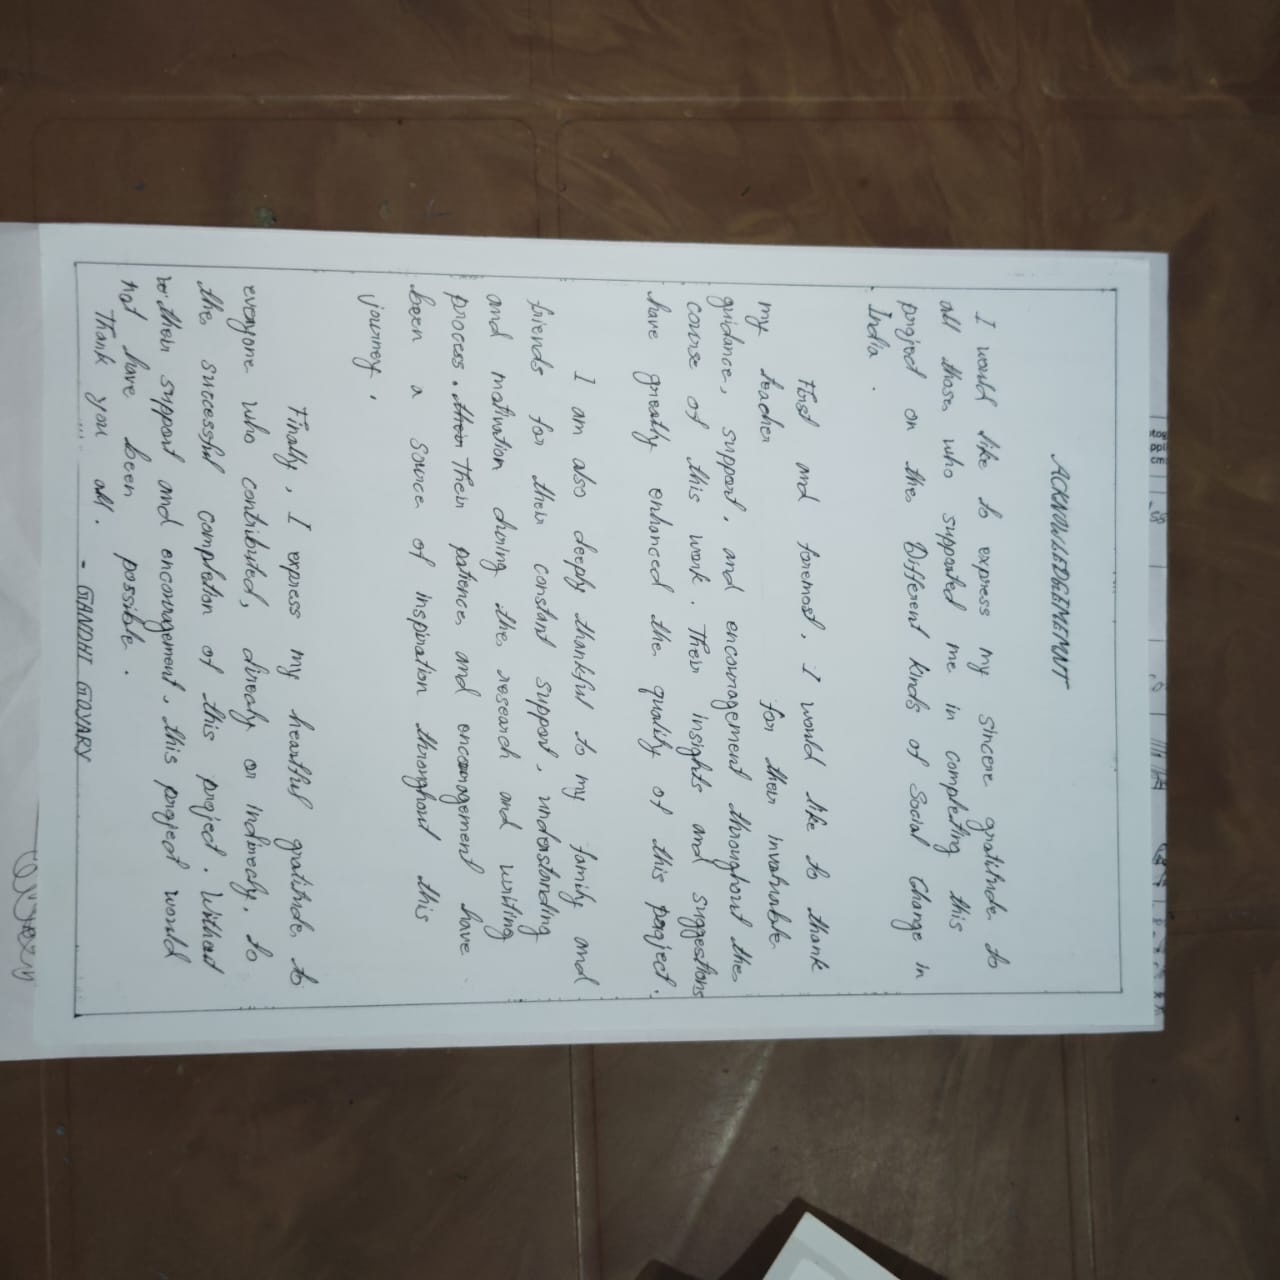 ACKNOWLEDGEMENT
I would like to express my sincere gratitude to
all those who supported me in completing this
project on the Different kinds of Social Change in
India.
First and foremost, I would like to thank
my teacher for their invaluable
guidance, support, and encouragement throughout the
course of this work. Their insights and suggestions
have greatly enhanced the quality of this project.
I am also deeply thankful to my family and
friends for their constant support, understanding
and motivation during the research and writing
process. their Their patience and encouragement have
been a source of inspiration throughout this
journey.
Finally, I express my heartful gratitude to
everyone who contributed, direcly or indirecly, to
the successful completion of this project. Without
their support and encouragement, this project would
not have been possible.
Thank you all. - GANDHI GOYARY